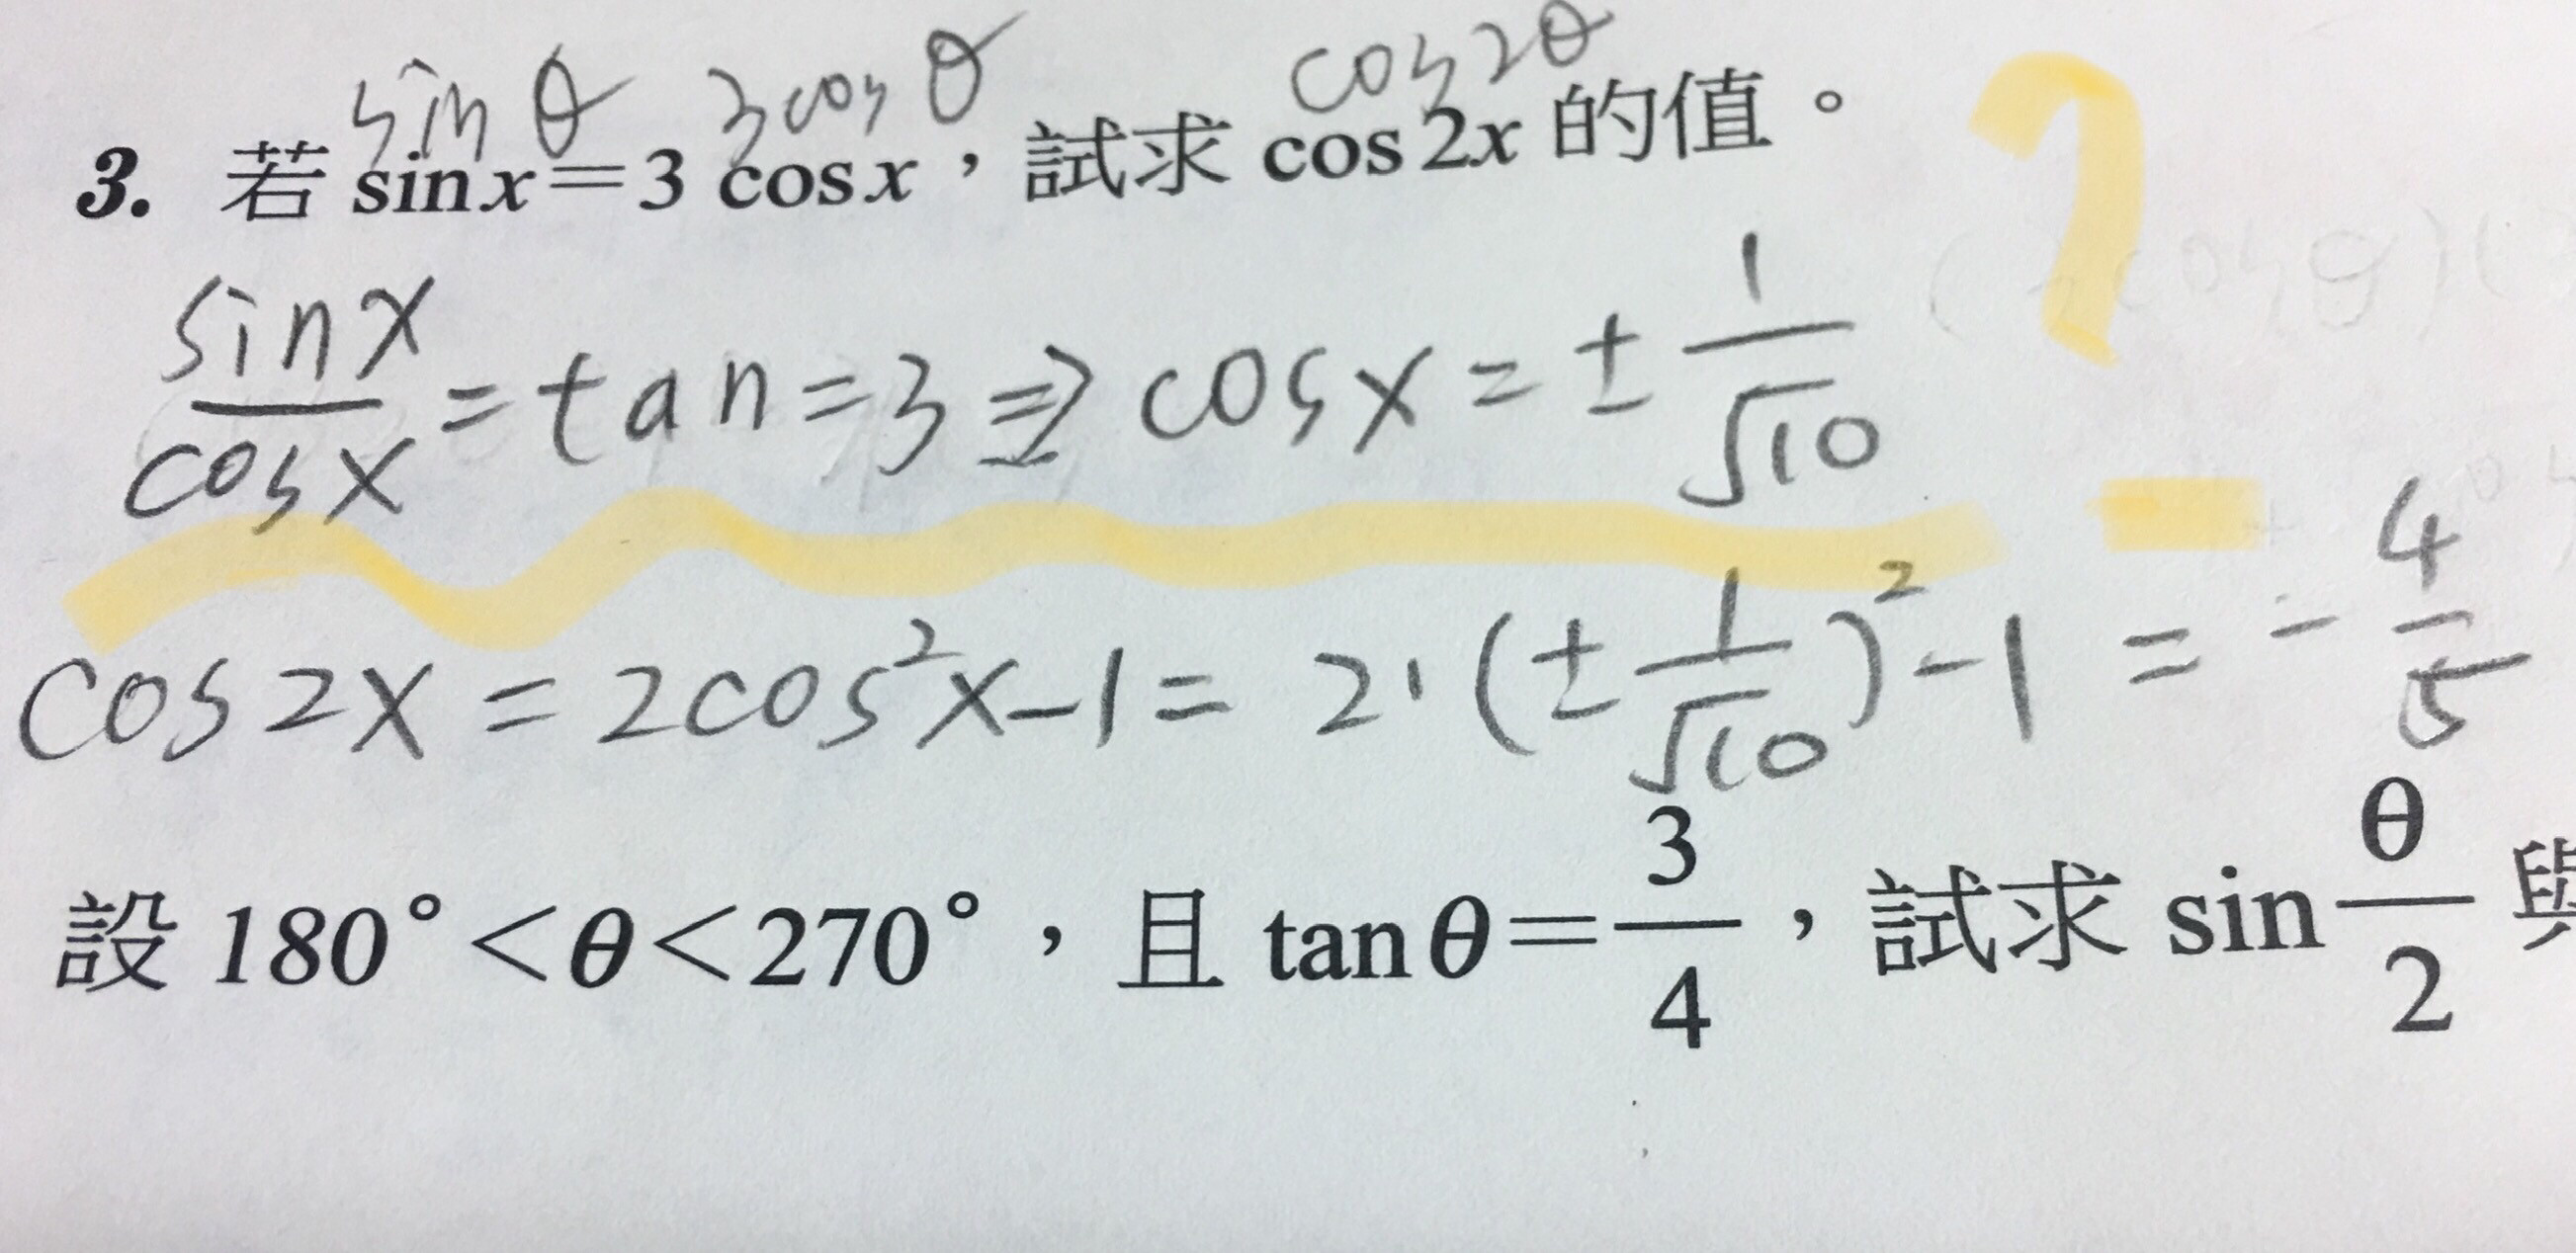 sin θ 3cos θ cos2θ
3. 若 sin x=3 cos x，試求 cos 2x 的值。
sinx/cosx = tan = 3 ⇒ cosx = ± 1/√10
cos2x = 2cos²x-1 = 2·(± 1/√10)²-1 = - 4/5
設 180°<θ<270°，且 tan θ= 3/4，試求 sin θ/2 與